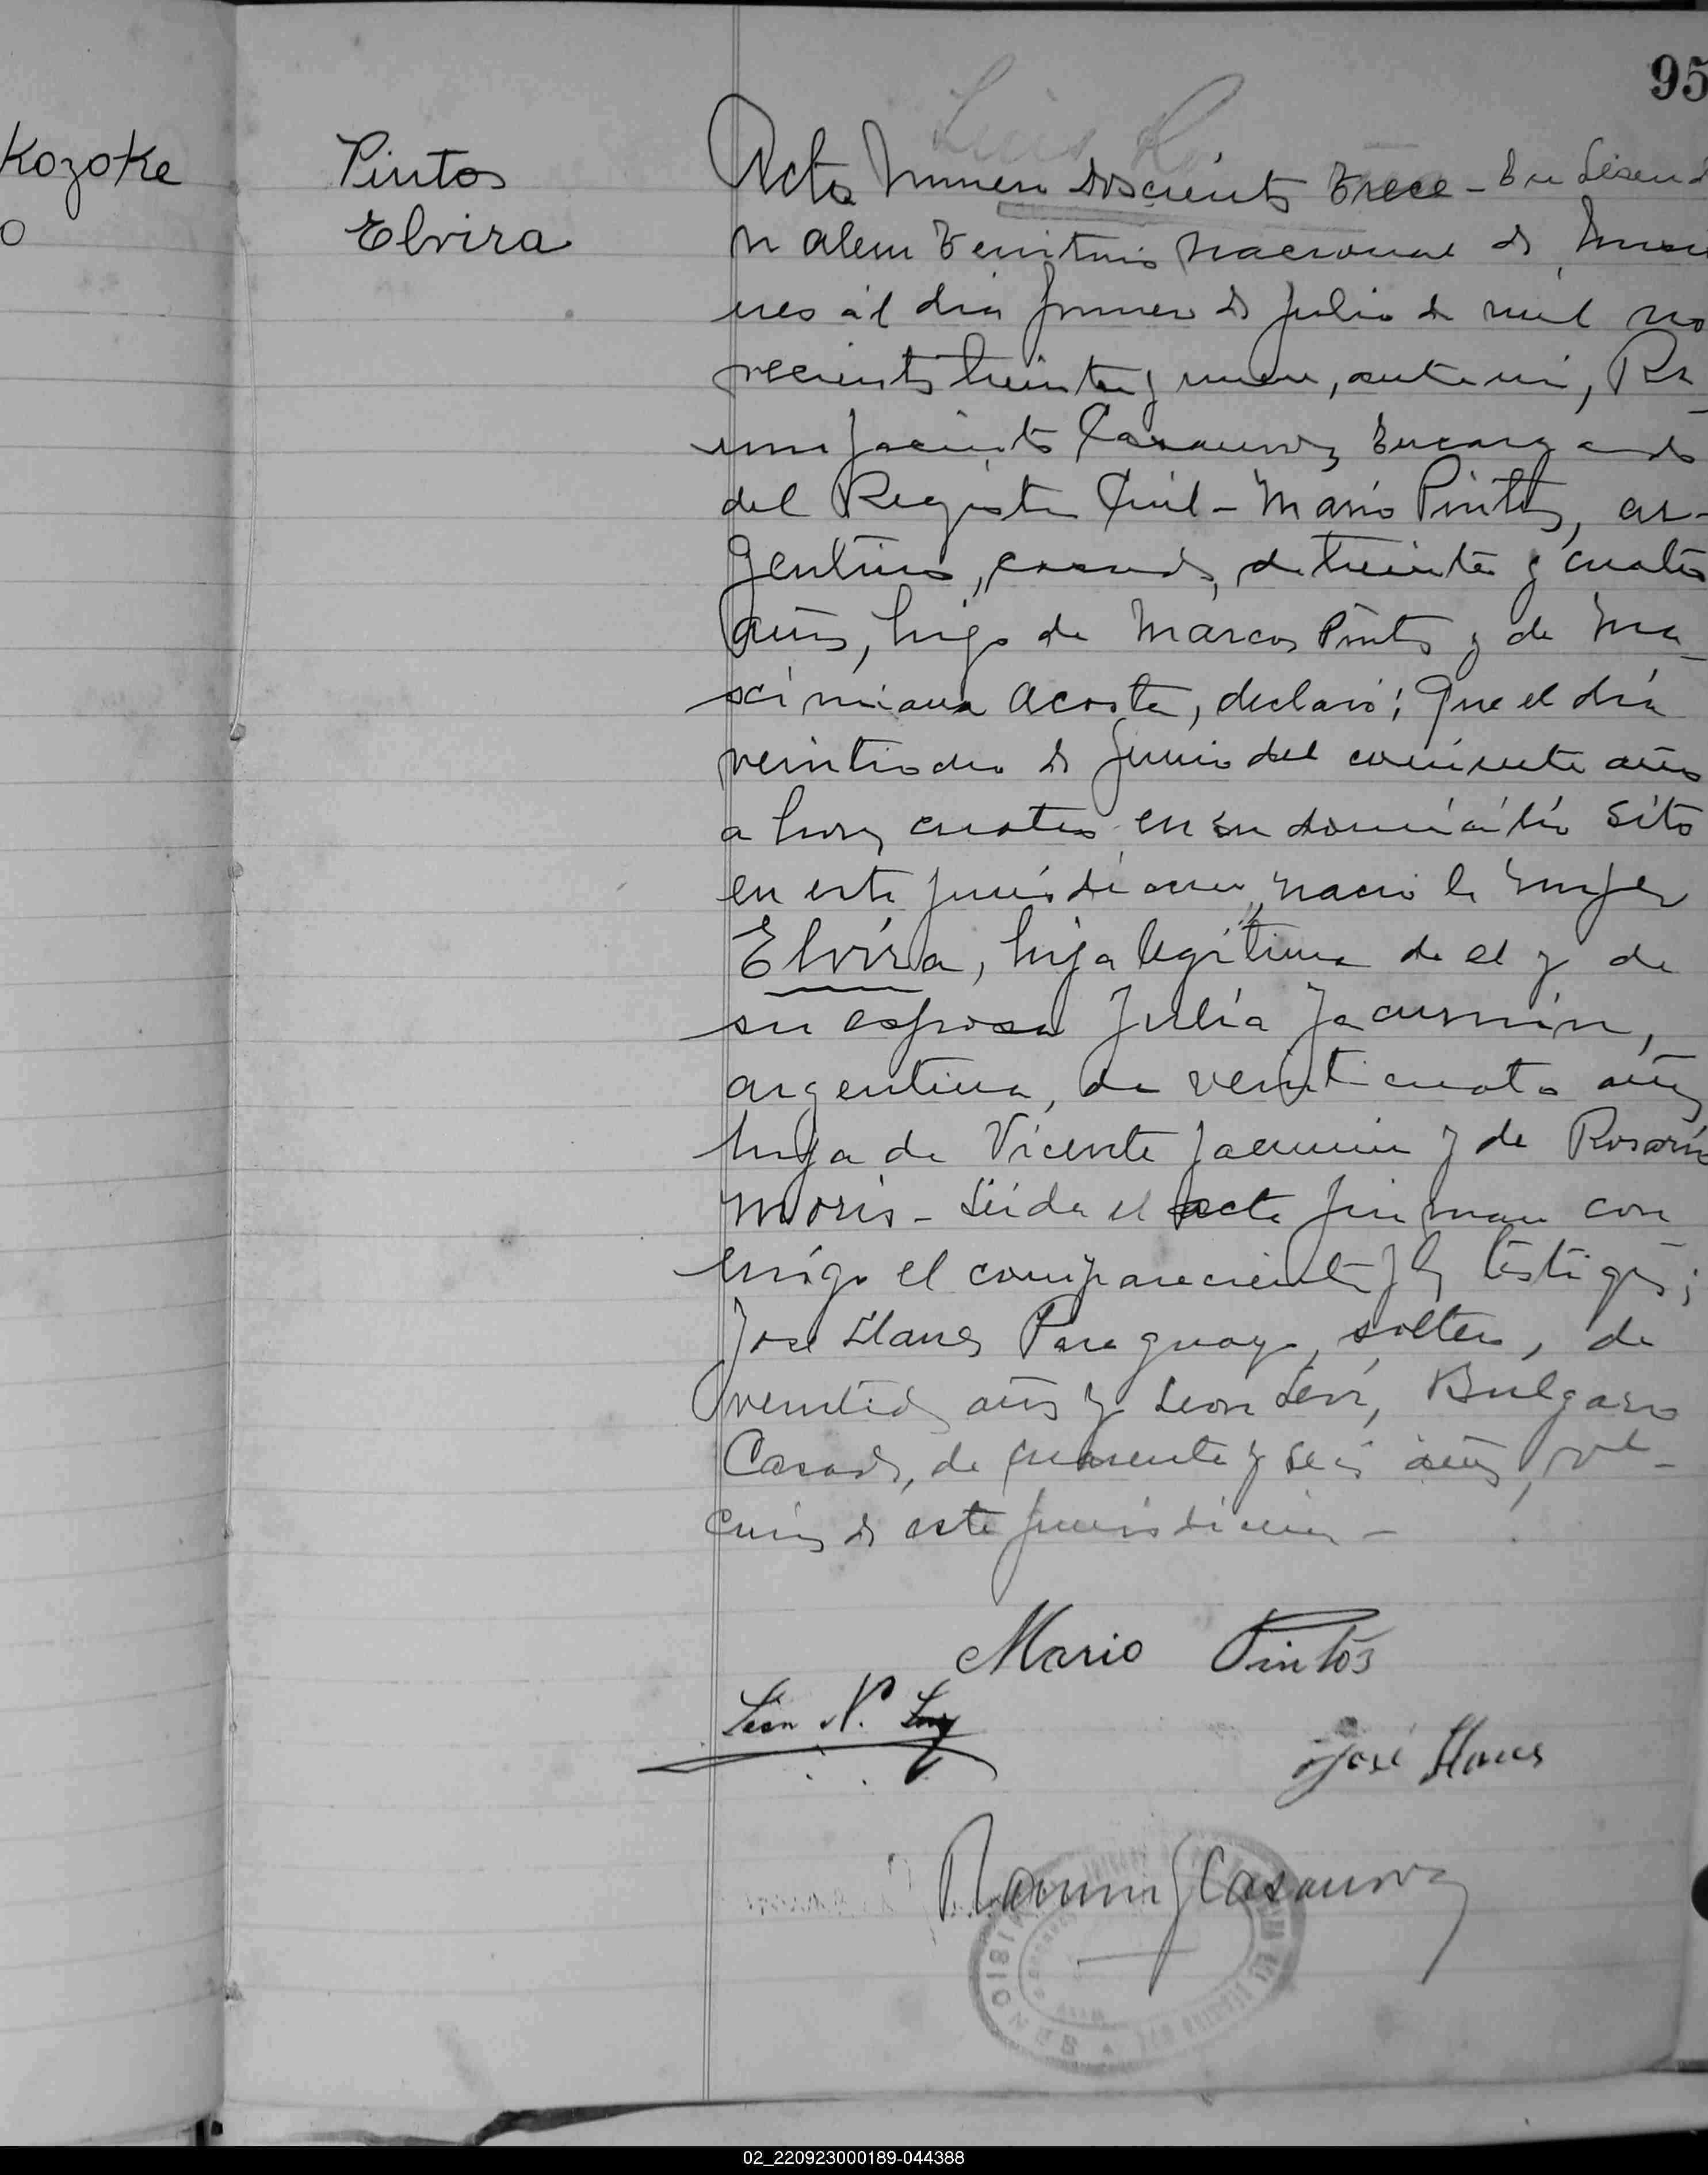 95
Kozoke
o
Pintos
Elvira
Acta Numero doscientos trece - En Leand
n Alem Territorio Nacional de Misio
nes a el dia primero de Julio de mil no
vecientos treinta y nueve, ante mi, Ra
mon Jacinto Casanova, Encargado
del Registro Civil - Mario Pintos, ar-
gentino, casado, de treinta y cuatro
años, hijo de Marcos Pintos y de Ma-
ximiana Acosta, declaró: Que el día
de Junio del corriente año
a horas cuatro en su domicilio sito
en esta jurisdiccion, nació la mujer
Elvira, hija legítima de el y de
su esposa Julia Jacusmin,
argentina, de veinticuatro años
hija de Vicente y de Rosario
Moris - Leida el acta firman con
migo el compareciente y los testigos;
Jose Llanes Paraguayo, soltero, de
veintidos años y Leon Levi, Bulgaro
Casado, de cuarenta y seis años, ve-
cinos de esta jurisdiccion -
Mario Pintos
León N. Levy
José Llanes
Ramon J Casanova
02_220923000189-044388